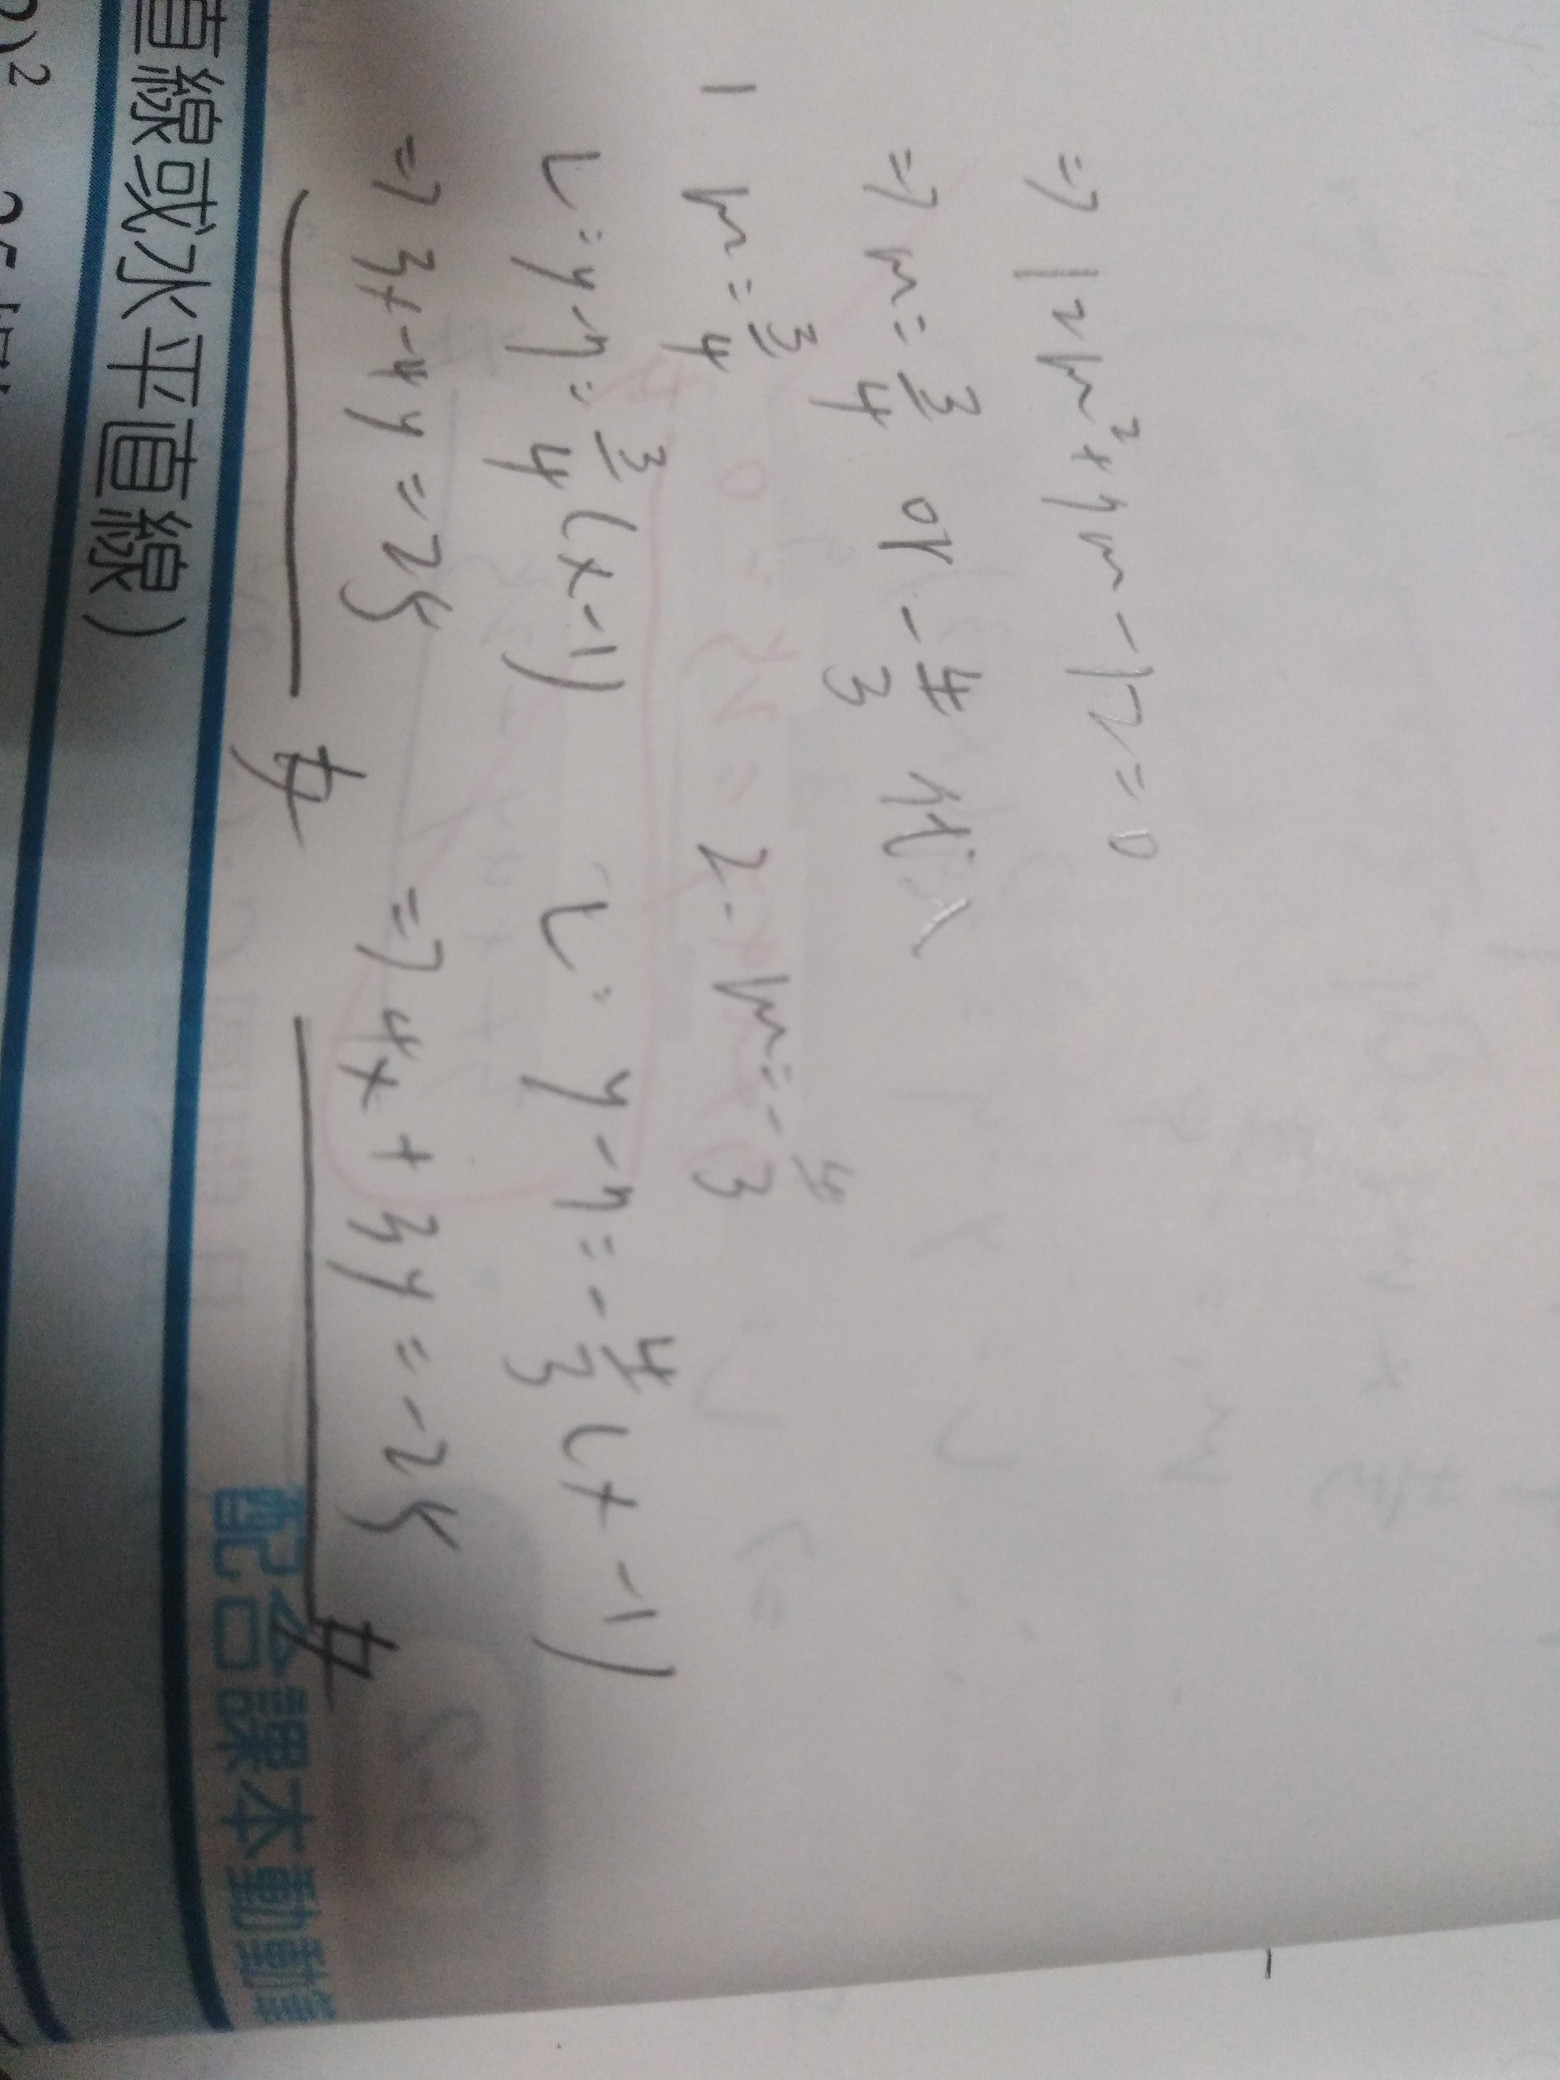 => 12m²+7m-12=0
=> m=3/4 or -4/3 代入
1 m=3/4 2. m=-4/3
L=y-7=3/4(x-1) L: y-7=-4/3(x-1)
=> 3x-4y=25 => 4x+3y=-25
配合課本動動
直線或水平直線)
)²